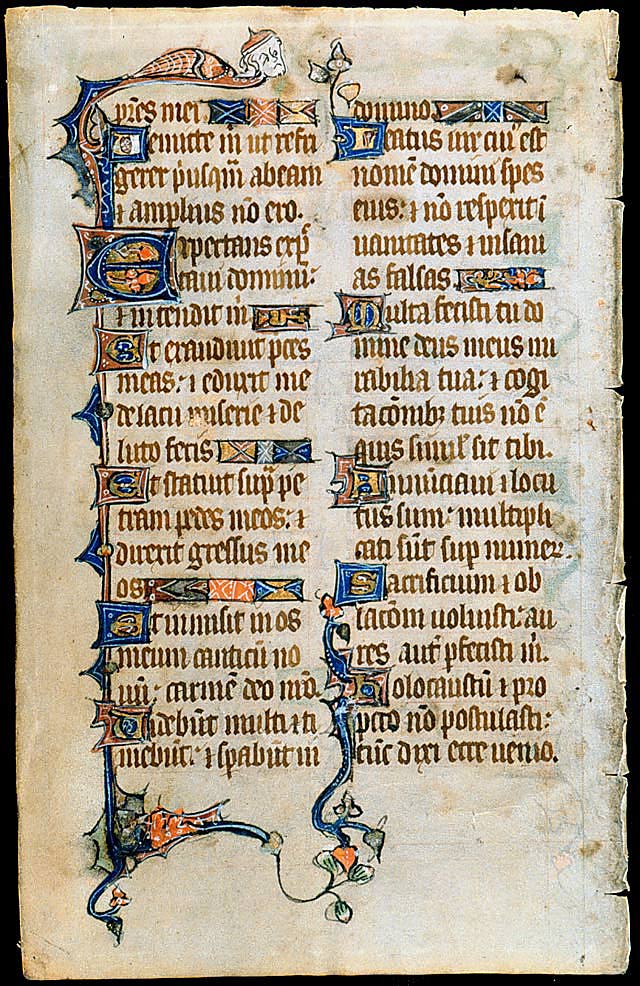 p̄res mei
Remitte m̄ ut refri
gerer p̄usq̄m abeam
⁊ amplius nō ero.
Expectans exp̄
ctaui dominū:
⁊ intendit m̄
Et exaudiuit p̄ces
meas: ⁊ eduxit me
de lacu miserie ⁊ de
luto fecis
Et statuit sup̄ pe
tram pedes meos: ⁊
direxit gressus me
os
Et inmisit in os
meum canticū no
uū: carmē deo nr̄o.
Uidebūt multi ⁊ ti
mebūt: ⁊ sp̄abūt in
domino.
Beatus uir cui' est
nomē domini spes
eius: ⁊ nō respexit ī
uanitates ⁊ insani
as falsas
Multa fecisti tu do
mine deus meus mi
rabilia tua: ⁊ cogi
tacōnibꝫ tuis nō ē
quis simił sit tibi.
Annunciaui ⁊ locu
tus sum: multipli
cati sūt sup̄ numeꝝ.
Sacrificium ⁊ ob
lacōm uoluisti: au
res aut̄ p̄fecisti m̄.
Holocaustū ⁊ pro
pcc̄o nō postulasti:
tūc dixi ecce uenio.